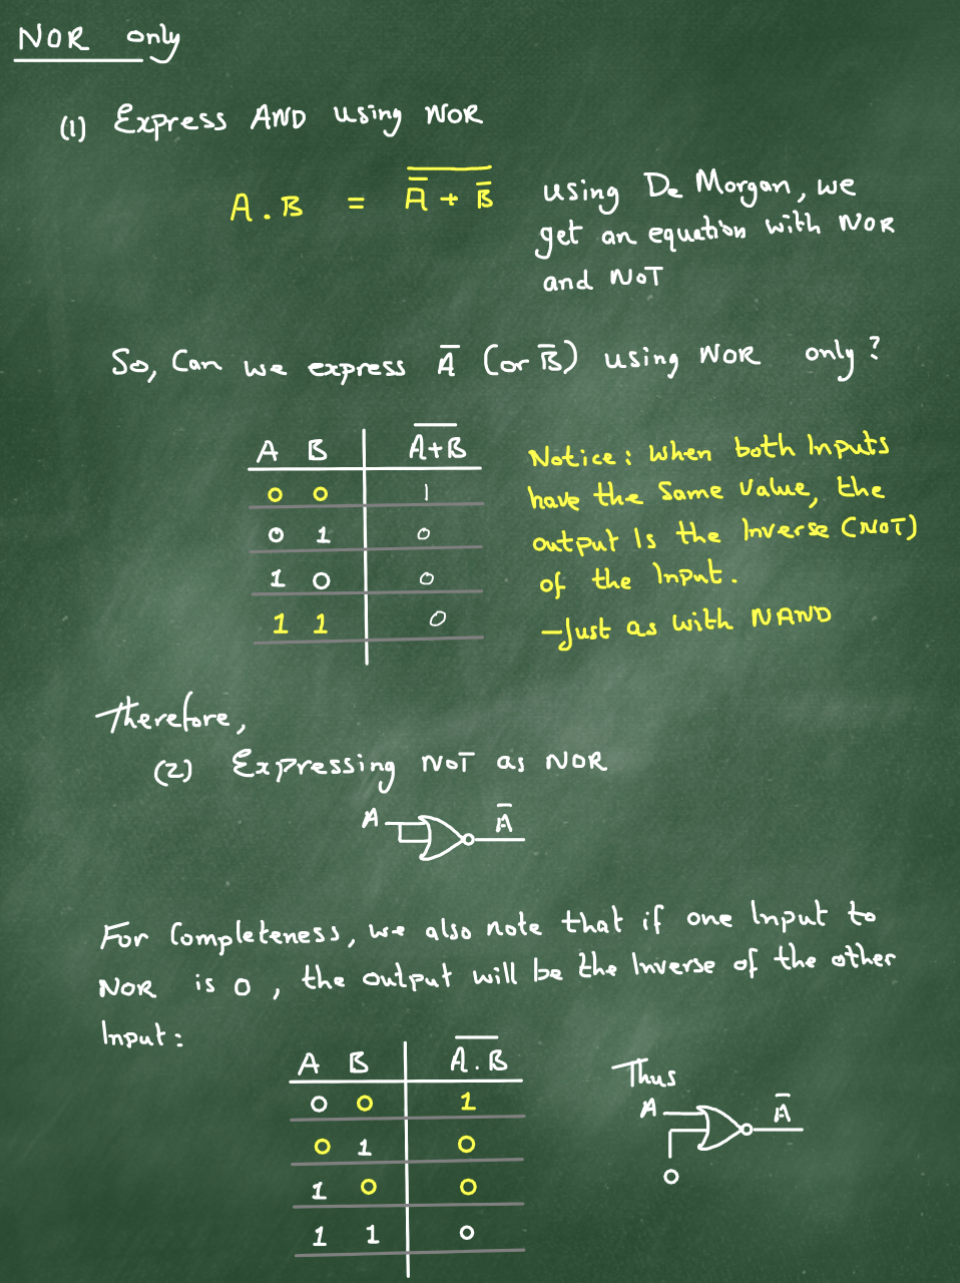 NOR only
(1) Express AND using NOR
A.B = \overline{\overline{A} + \overline{B}}
using De Morgan, we
get an equation with NOR
and NOT
So, Can we express A̅ (or B̅) using NOR only?
A B \overline{A+B}
0 0 1
0 1 0
1 0 0
1 1 0
Notice: When both Inputs
have the Same Value, the
output Is the Inverse (NOT)
of the Input.
-Just as with NAND
Therefore,
(2) Expressing NOT as NOR
A A̅
For Completeness, we also note that if one Input to
NOR is 0, the output will be the Inverse of the other
Input:
A B \overline{A.B}
0 0 1
0 1 0
1 0 0
1 1 0
Thus
A A̅
0